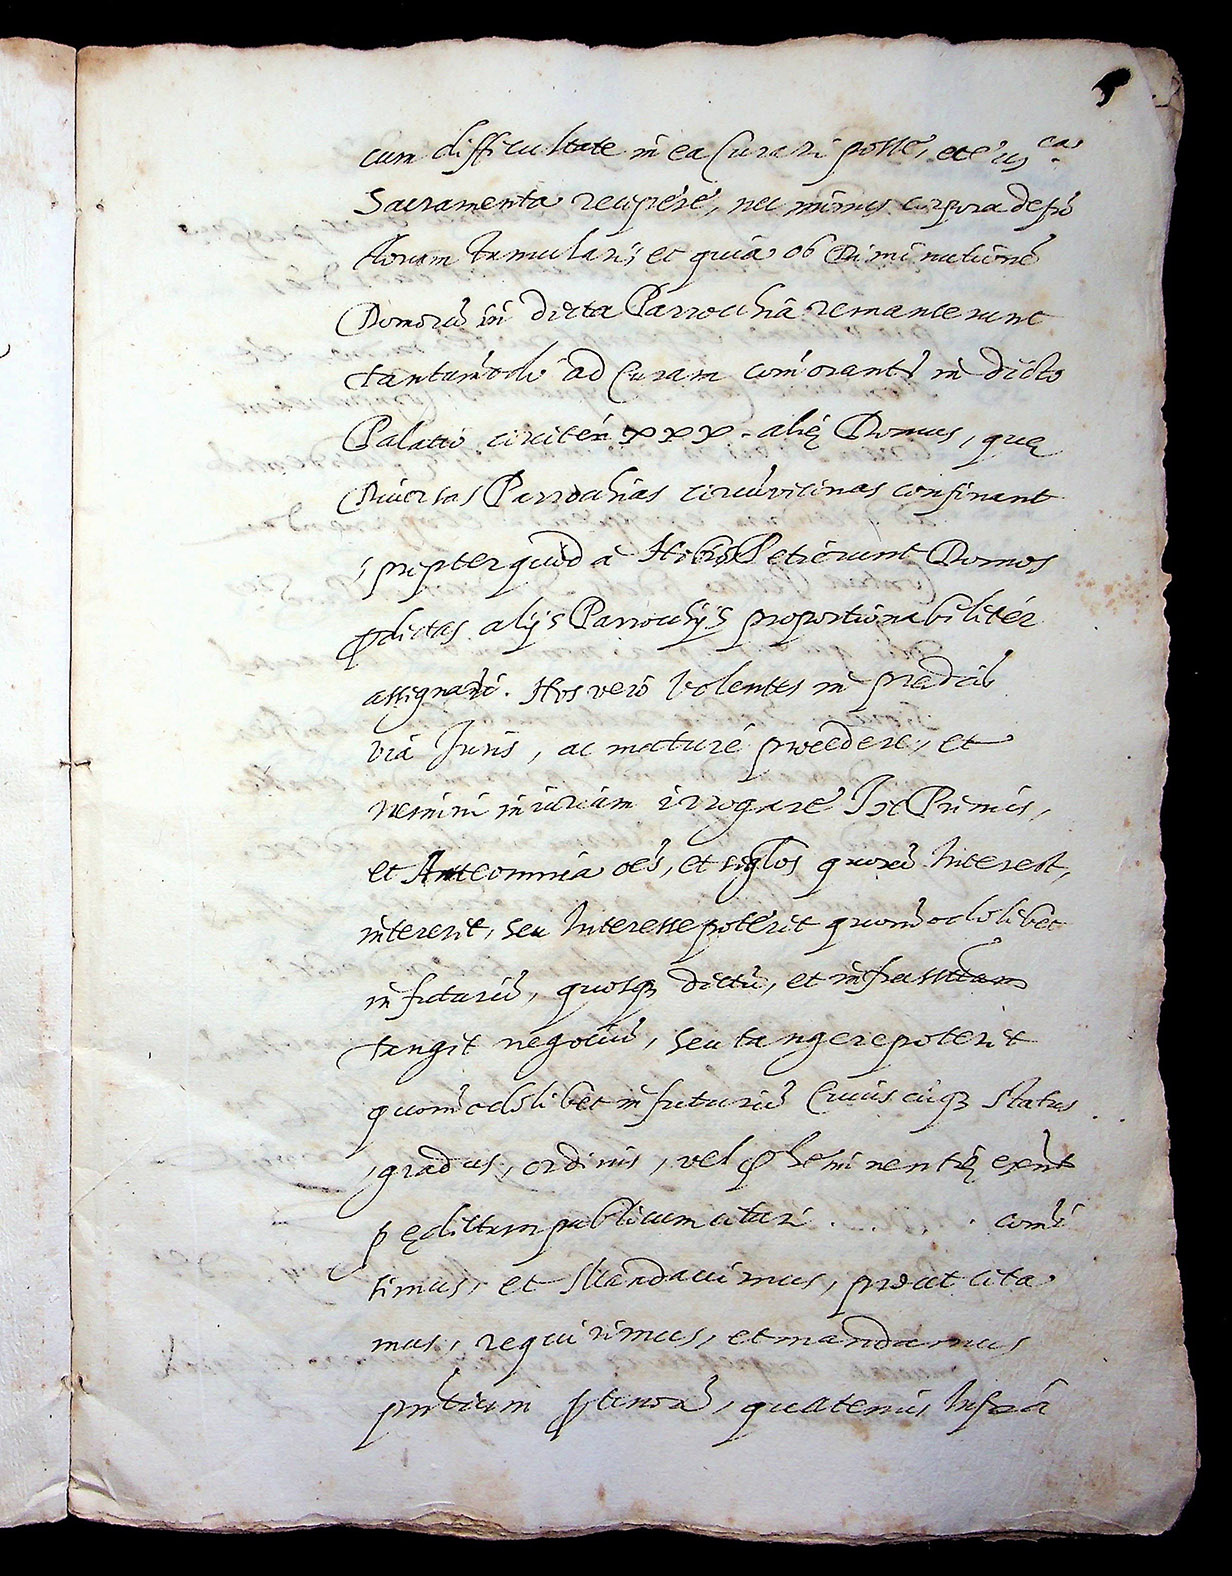 5
cum difficultate in ea Curari posse, et eius
Sacramenta recipere, nec minus corpora defū
ctorum tumulari; et quia ob Diminutionē
Domorū in dicta Parrochia remanserunt
tantum̄odo ad Curam com̄orantes in dicto
Palatio circiter xxx. alię Domus, quę
Diuersas Parrochias circūuicinas confinant
, propter quod a Nobis Petierunt Domos
p̄dictas alijs Parrochijs proportionabiliter
assignari. Nos vero volentes in prædictis
via Juris, ac mature procedere, et
nemini iniuriam irrogare In Primis,
et Ante omnia oēs, et sīglos quorū Interest,
intererit, seu Interesse poterit quom̄odolibet
in futurū, quosq; dictū, et infrascriptum
tangit negociū, seu tangere poterit
quom̄odolibet in futurū Cuiuscūq; Status
, gradus, ordinis, vel p̄heminentię exn̄t
p ędictum publicum citari . . . . com̄i
simus, et Mandauimus, prout cita
mus, requirimus, et mandamus
pn̄tium p̄ tenorē, quatenus Infra